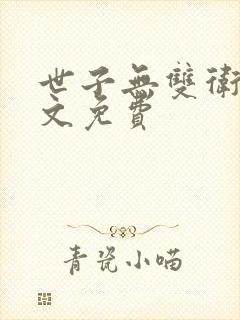 世子無雙衛
文免費
青瓷小喵